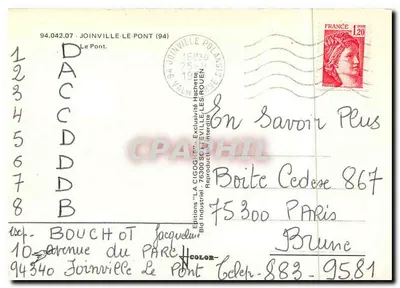 94.042.07 - JOINVILLE-LE-PONT (94)
Le Pont.
1 D
2 A
3 C
4 C
5 D
6 D
7 D
8 B
exp- BOUCHOT Jacqueline
10 avenue du PARC
94340 Joinville Le Pont
Editions "LA CIGOGNE" - Exclusivité Hachette
Bld Industriel - 76300 SOTTEVILLE-LES-ROUEN
Reproduction interdite
COLOR
JOINVILLE
FRANCE
1,20
En Savoir Plus
Boite Cedese 867
75300 PARIS
Brune
Telep- 883-9581